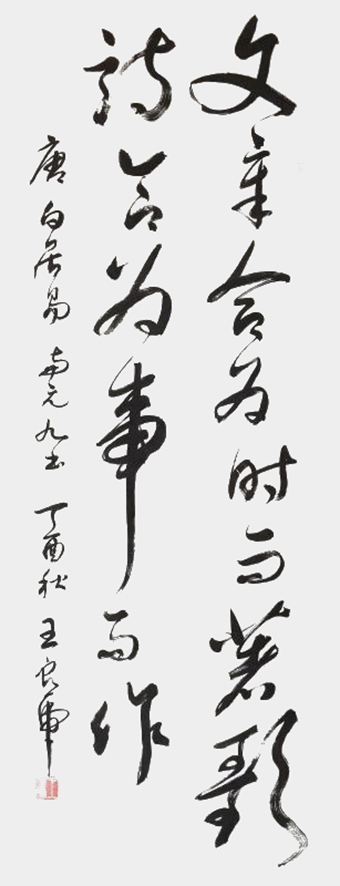 文章合为时而著歌
詩合为事而作
唐白居易與元九书丁酉秋王良